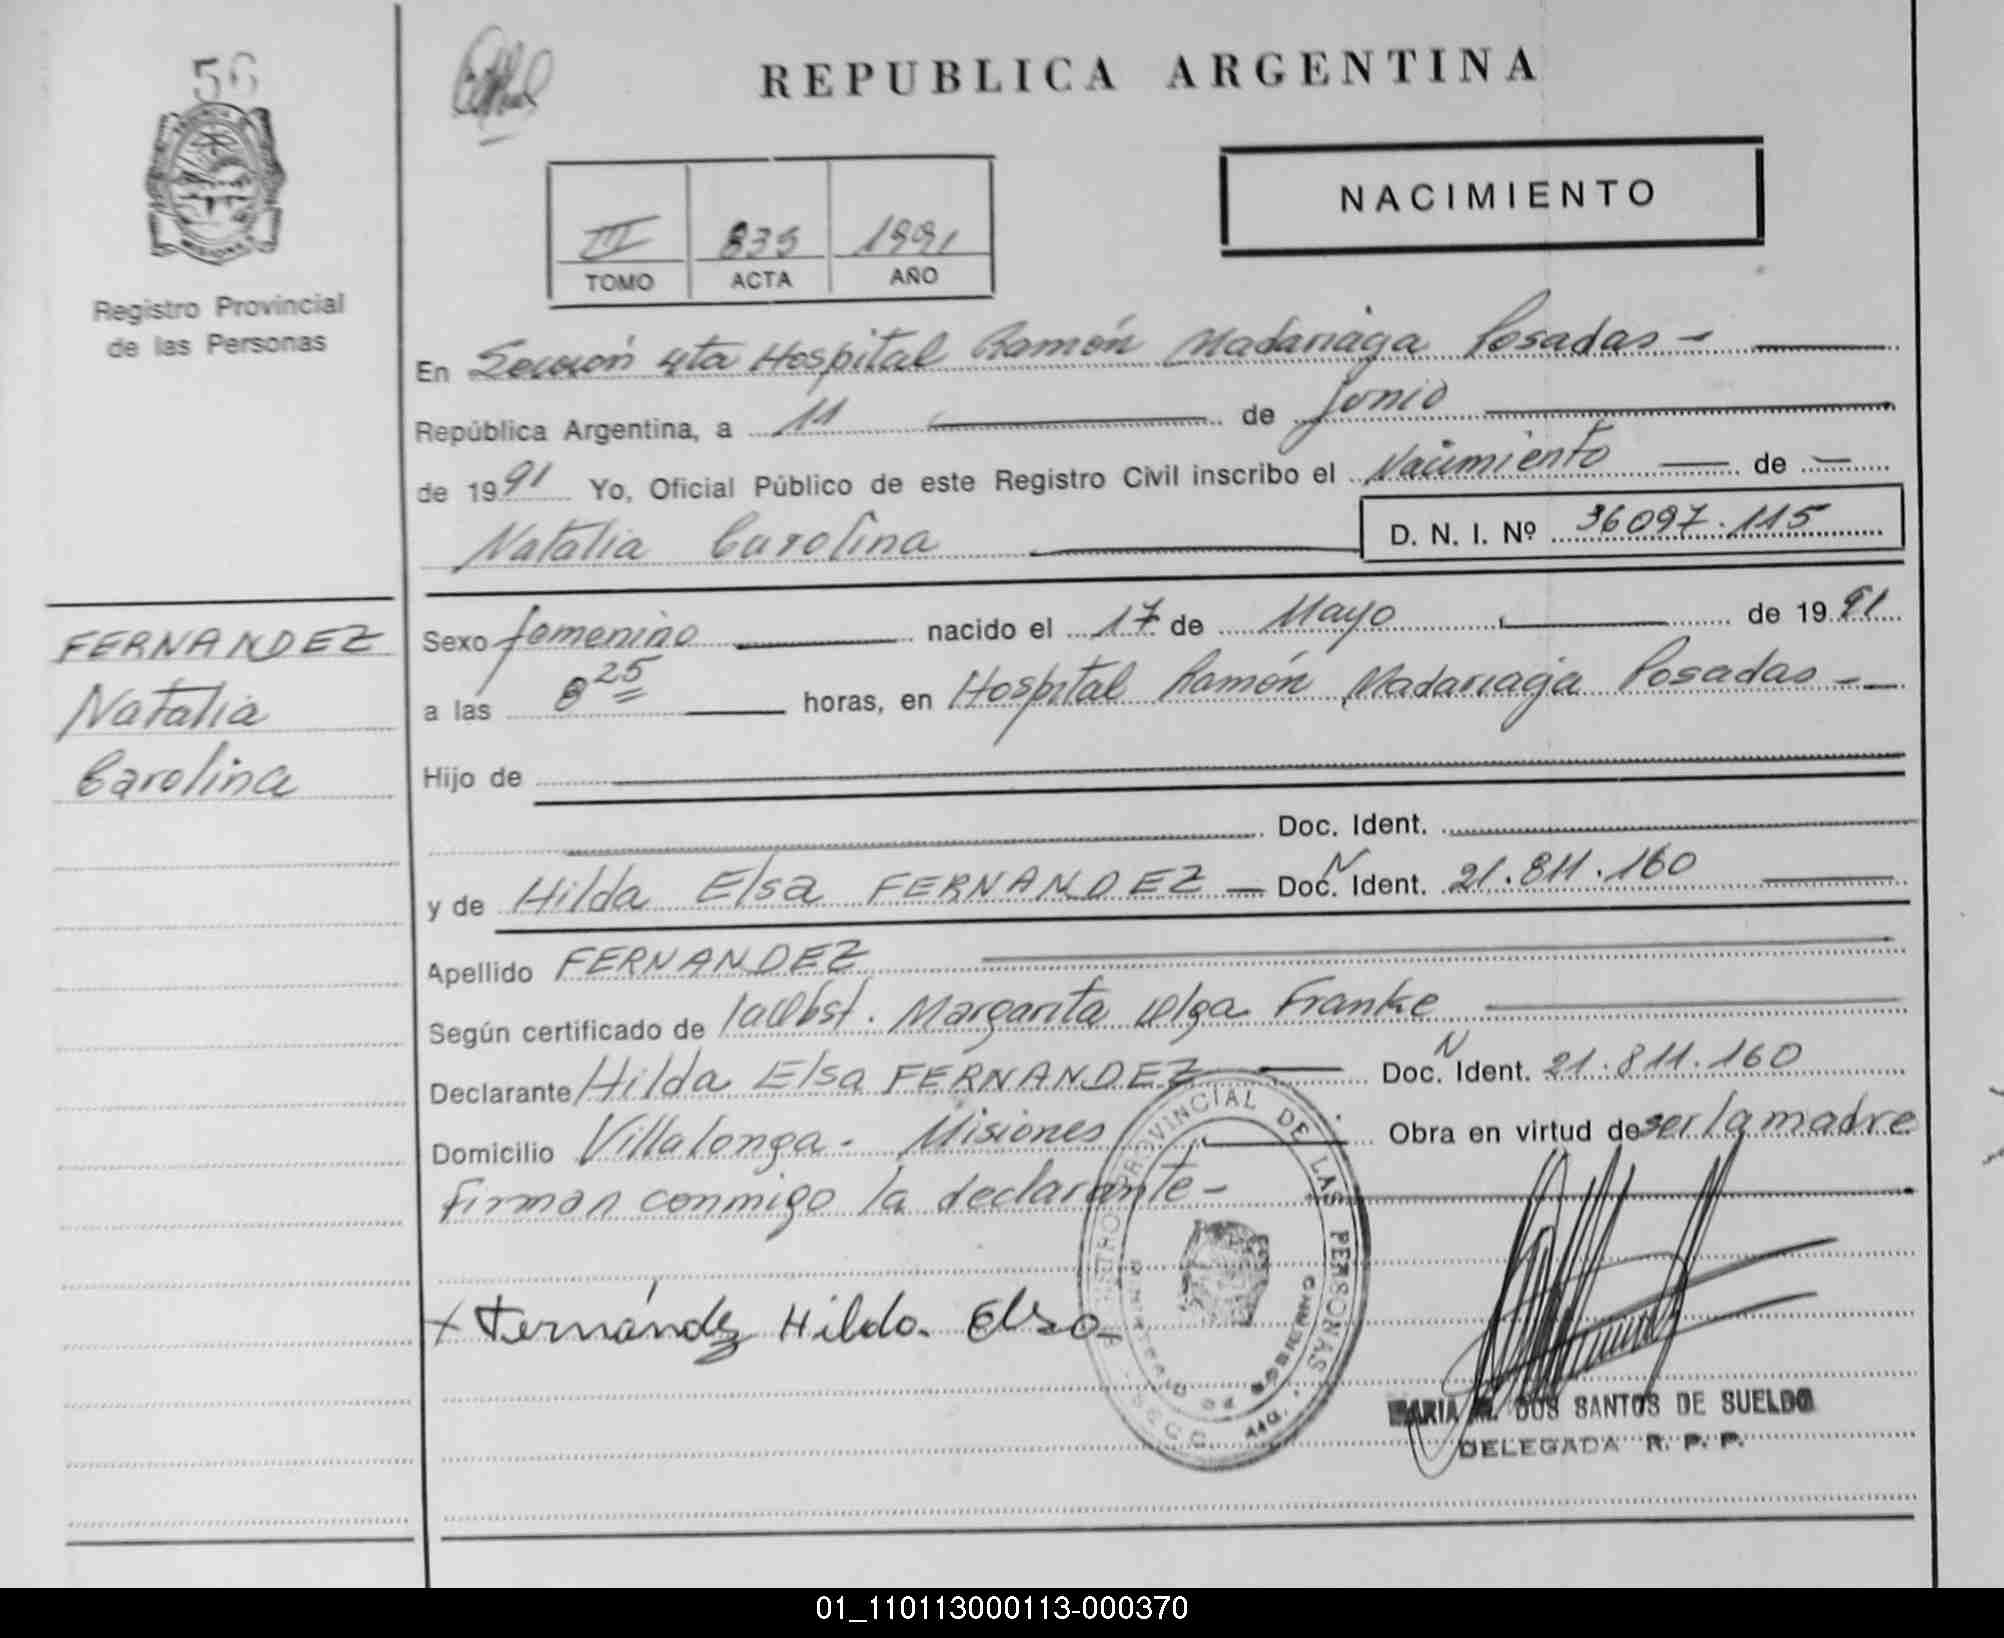 56
REPUBLICA ARGENTINA
NACIMIENTO
III 835 1991
TOMO ACTA AÑO
Registro Provincial
de las Personas
En Sección 4ta Hospital Ramón Madariaga Posadas -
República Argentina, a 11 de Junio
de 1991 Yo, Oficial Público de este Registro Civil inscribo el Nacimiento de -
Natalia Carolina D. N. I. Nº 36097.115
FERNANDEZ
Natalia
Carolina
Sexo femenino nacido el 17 de Mayo de 1991
a las 8 25 horas, en Hospital Ramón Madariaga Posadas -
Hijo de
Doc. Ident.
y de Hilda Elsa FERNANDEZ - Doc. N Ident. 21.811.160
Apellido FERNANDEZ
Según certificado de la Obst. Margarita Olga Franke
Declarante Hilda Elsa FERNANDEZ Doc. N Ident. 21.811.160
Domicilio Villalonga - Misiones Obra en virtud de ser la madre
Firman conmigo la declarante -
x Fernández Hilda Elsa
PROVINCIAL DE LAS PERSONAS
DE GOBIERNO
MARIA DOS SANTOS DE SUELDO
DELEGADA R. P. P.
01_110113000113-000370